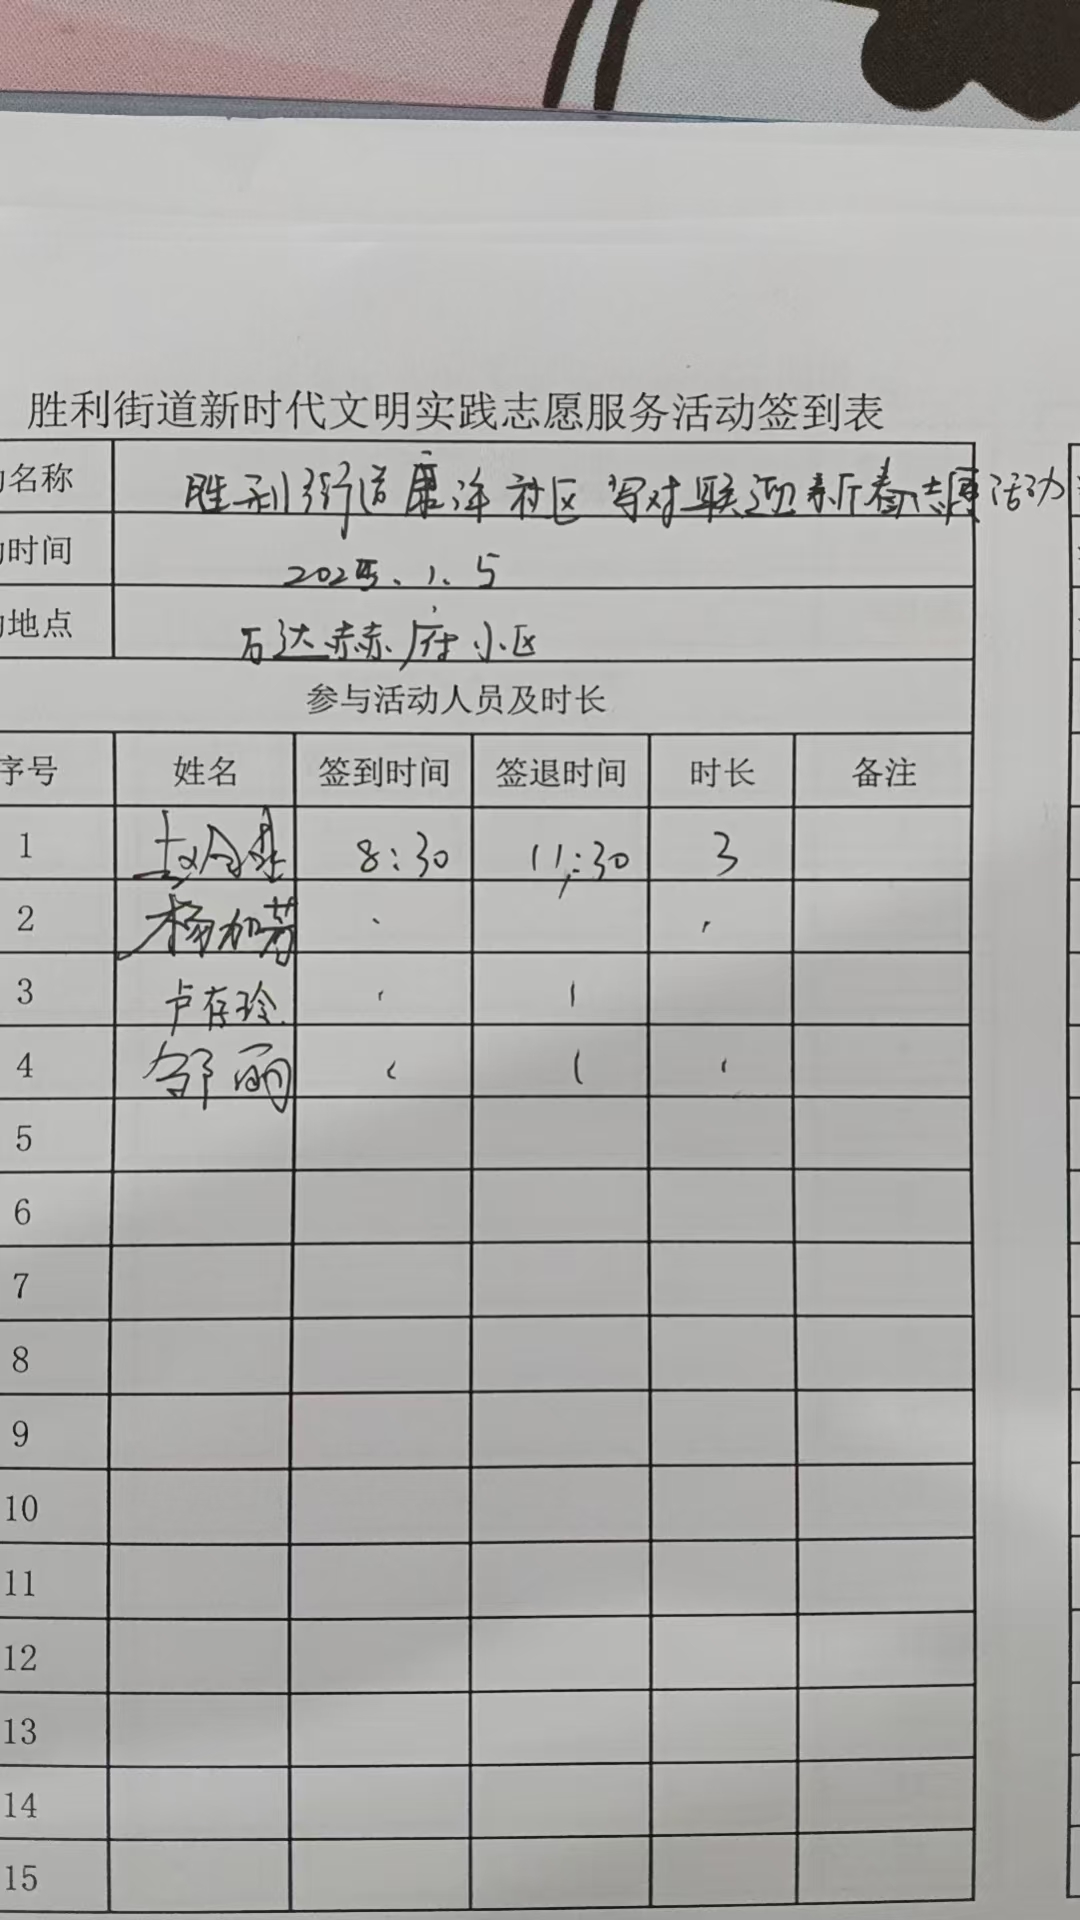 胜利街道新时代文明实践志愿服务活动签到表
名称 胜利街道康洋社区写对联迎新春志愿活动
时间 2025.1.5
地点 万达赫府小区
参与活动人员及时长
序号 姓名 签到时间 签退时间 时长 备注
1 8:30 11:30 3
2 杨加芳
3 卢存玲
4 邹丽
5
6
7
8
9
10
11
12
13
14
15